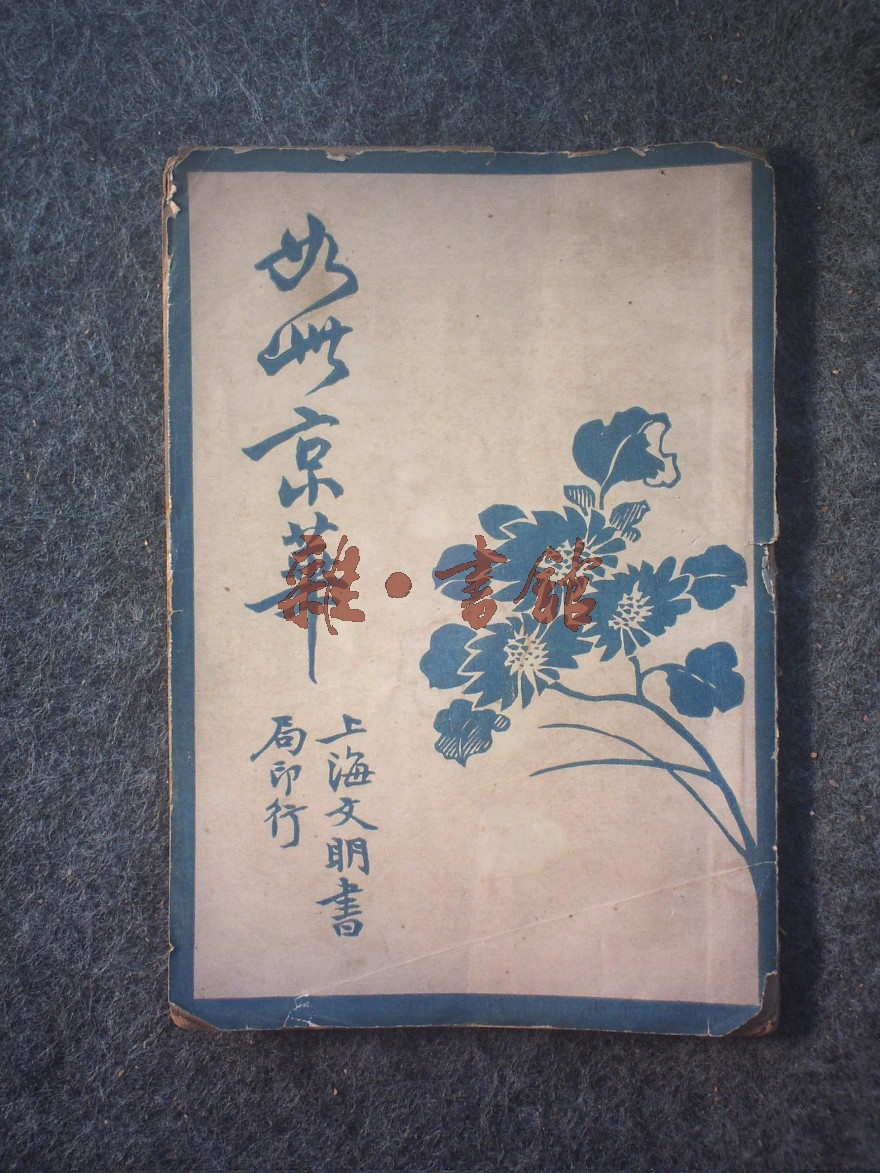 如此京華
上海文明書
局印行
雜·書館